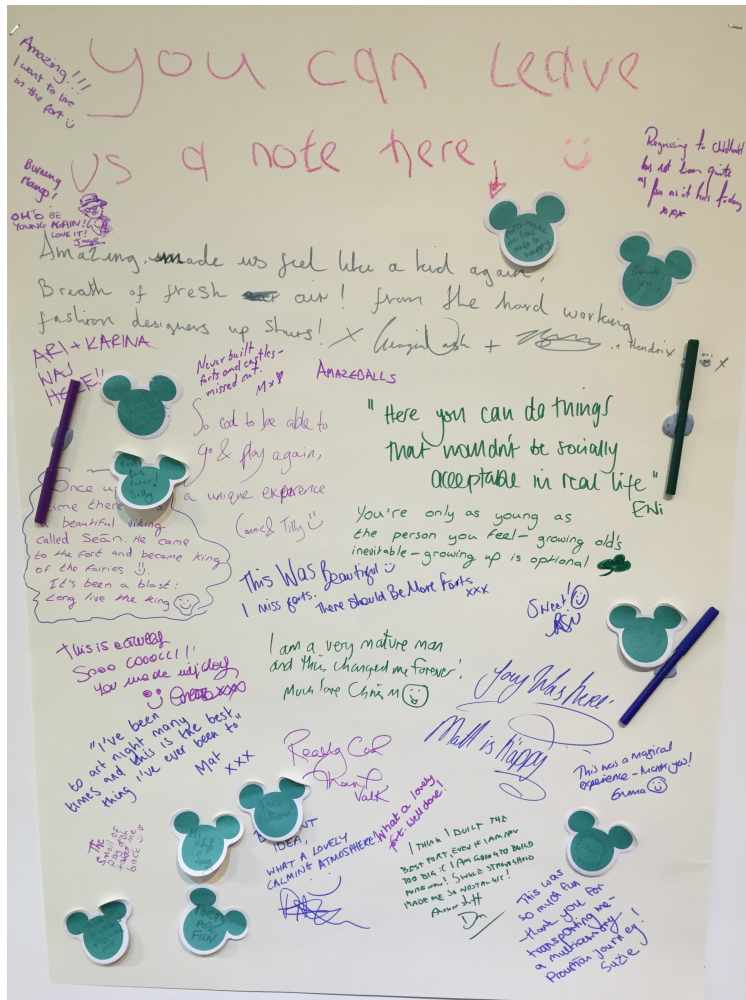 you can leave
us a note here
Amazing!!!
I want to live
in the fort
Burning
Mango!
OH TO BE
YOUNG AGAIN!
LOVE IT!
Regressing to childhood
has not been quite
as fun as it has today
xxx
Thank
you!
Amazing, made us feel like a kid again,
Breath of fresh air! from the hard working
fashion designers up stairs! x + + Hendrix x
ARI + KARINA
WAS
HERE!!
Never built
forts and castles -
missed out.
Mx
AMAZEBALLS
So cool to be able to
go & play again,
a unique experence
Connie & Tilly
"Here you can do things
that wouldn't be socially
acceptable in real life"
Eni
You're only as young as
the person you feel - growing old's
inevitable - growing up is optional
Best
fort
ever!
Sally
Once up
time there
beautiful viking
called Seán. He came
to the fort and became king
of the fairies
It's been a blast:
Long live the king
This Was Beautiful
I miss forts. There Should Be More Forts xxx
Sweet!
This is
Sooo cooolll!!
You made my day
xxx
I am a very mature man
and this changed me forever!
Much love Chris M
Joey Was here!
Matt is happy
"I've been
to art night many
times and this is the best
thing I've ever been to"
Mat
xxx
Really Cool
Thank
What a lovely
fort. Well done!
This was a magical
experience - thank you!
Emma
The
Smell of
play doh
takes me
back
IDEA,
WHAT A LOVELY
CALMING ATMOSPHERE!
I THINK I BUILT THE
BEST FORT EVEN IF I AM NOW
TOO BIG I AM GOING TO BUILD
MORE NOW!
MADE ME SO NOSTALGIC!
This was
so much fun
- thank you for
transporting me
a multisensory
Proustian journey!
Suzie
FORTS
ARE
FUN